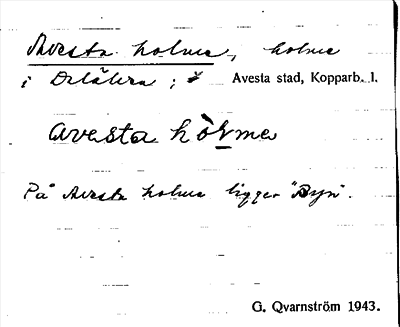 Avesta holme, holme
i Dalälven; i Avesta stad, Kopparb. l.
avesta hòlme
På Avesta holme ligger "Byn".
G. Qvarnström 1943.